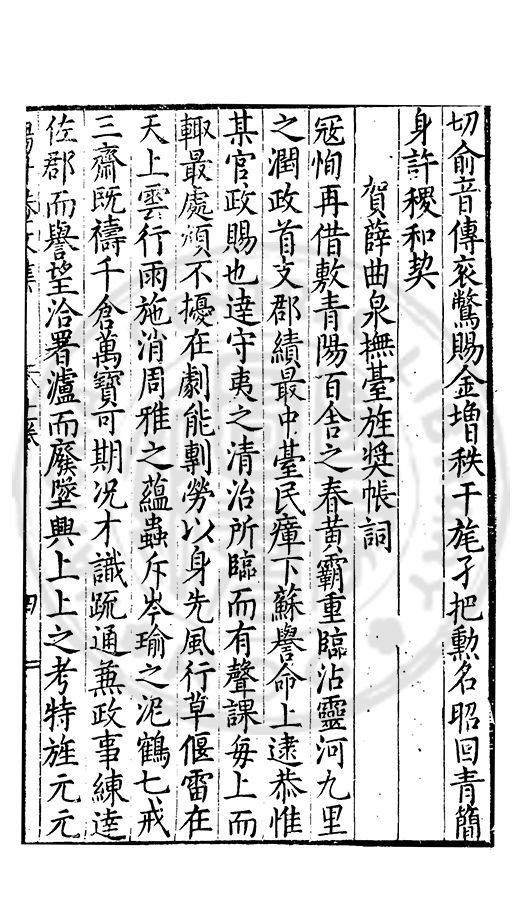 切俞音傳衮驚賜金增秩干旄孑把勲名昭回青簡
身許稷和契
賀薛曲泉撫臺旌奬帳詞
冦恂再借敷青陽百舍之春黄霸重臨沾靈河九里
之潤政首支郡績最中臺民瘴下蘇譽命上逮恭惟
某官政賜也達守夷之清治所臨而有聲課毎上而
輙最處煩不擾在劇能剸勞以身先風行草偃雷在
天上雲行雨施消周雅之蘊蟲斥岑瑜之泥鶴七戒
三齋既禱千倉萬寳可期况才識疏通兼政事練達
佐郡而譽望洽署瀘而廢墜興上上之考特旌元元